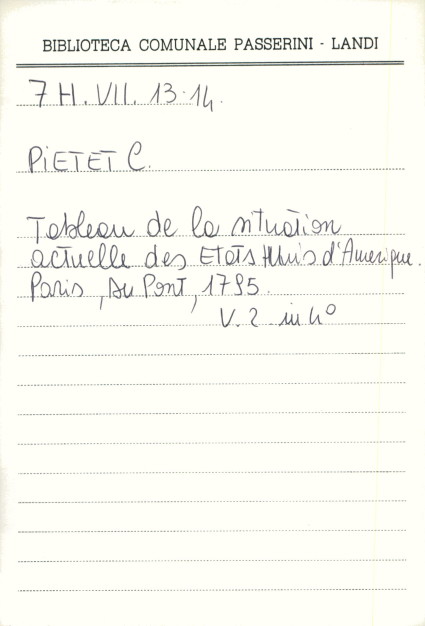 BIBLIOTECA COMUNALE PASSERINI - LANDI
7 H. VII. 13-14.
PIETET C.
Tableau de la situation
actuelle des Etats Unis d'Amerique.
Paris, Du Pont, 1795.
V. 2 in 4°